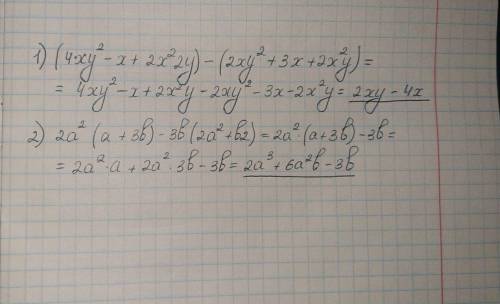 1) (4xy² - x + 2x²2y) - (2xy² + 3x + 2x²y) =
= 4xy² - x + 2x²y - 2xy² - 3x - 2x²y = 2xy - 4x
2) 2a² (a + 3b) - 3b (2a² + b2) = 2a² · (a + 3b) - 3b =
= 2a² · a + 2a² · 3b - 3b = 2a³ + 6a²b - 3b